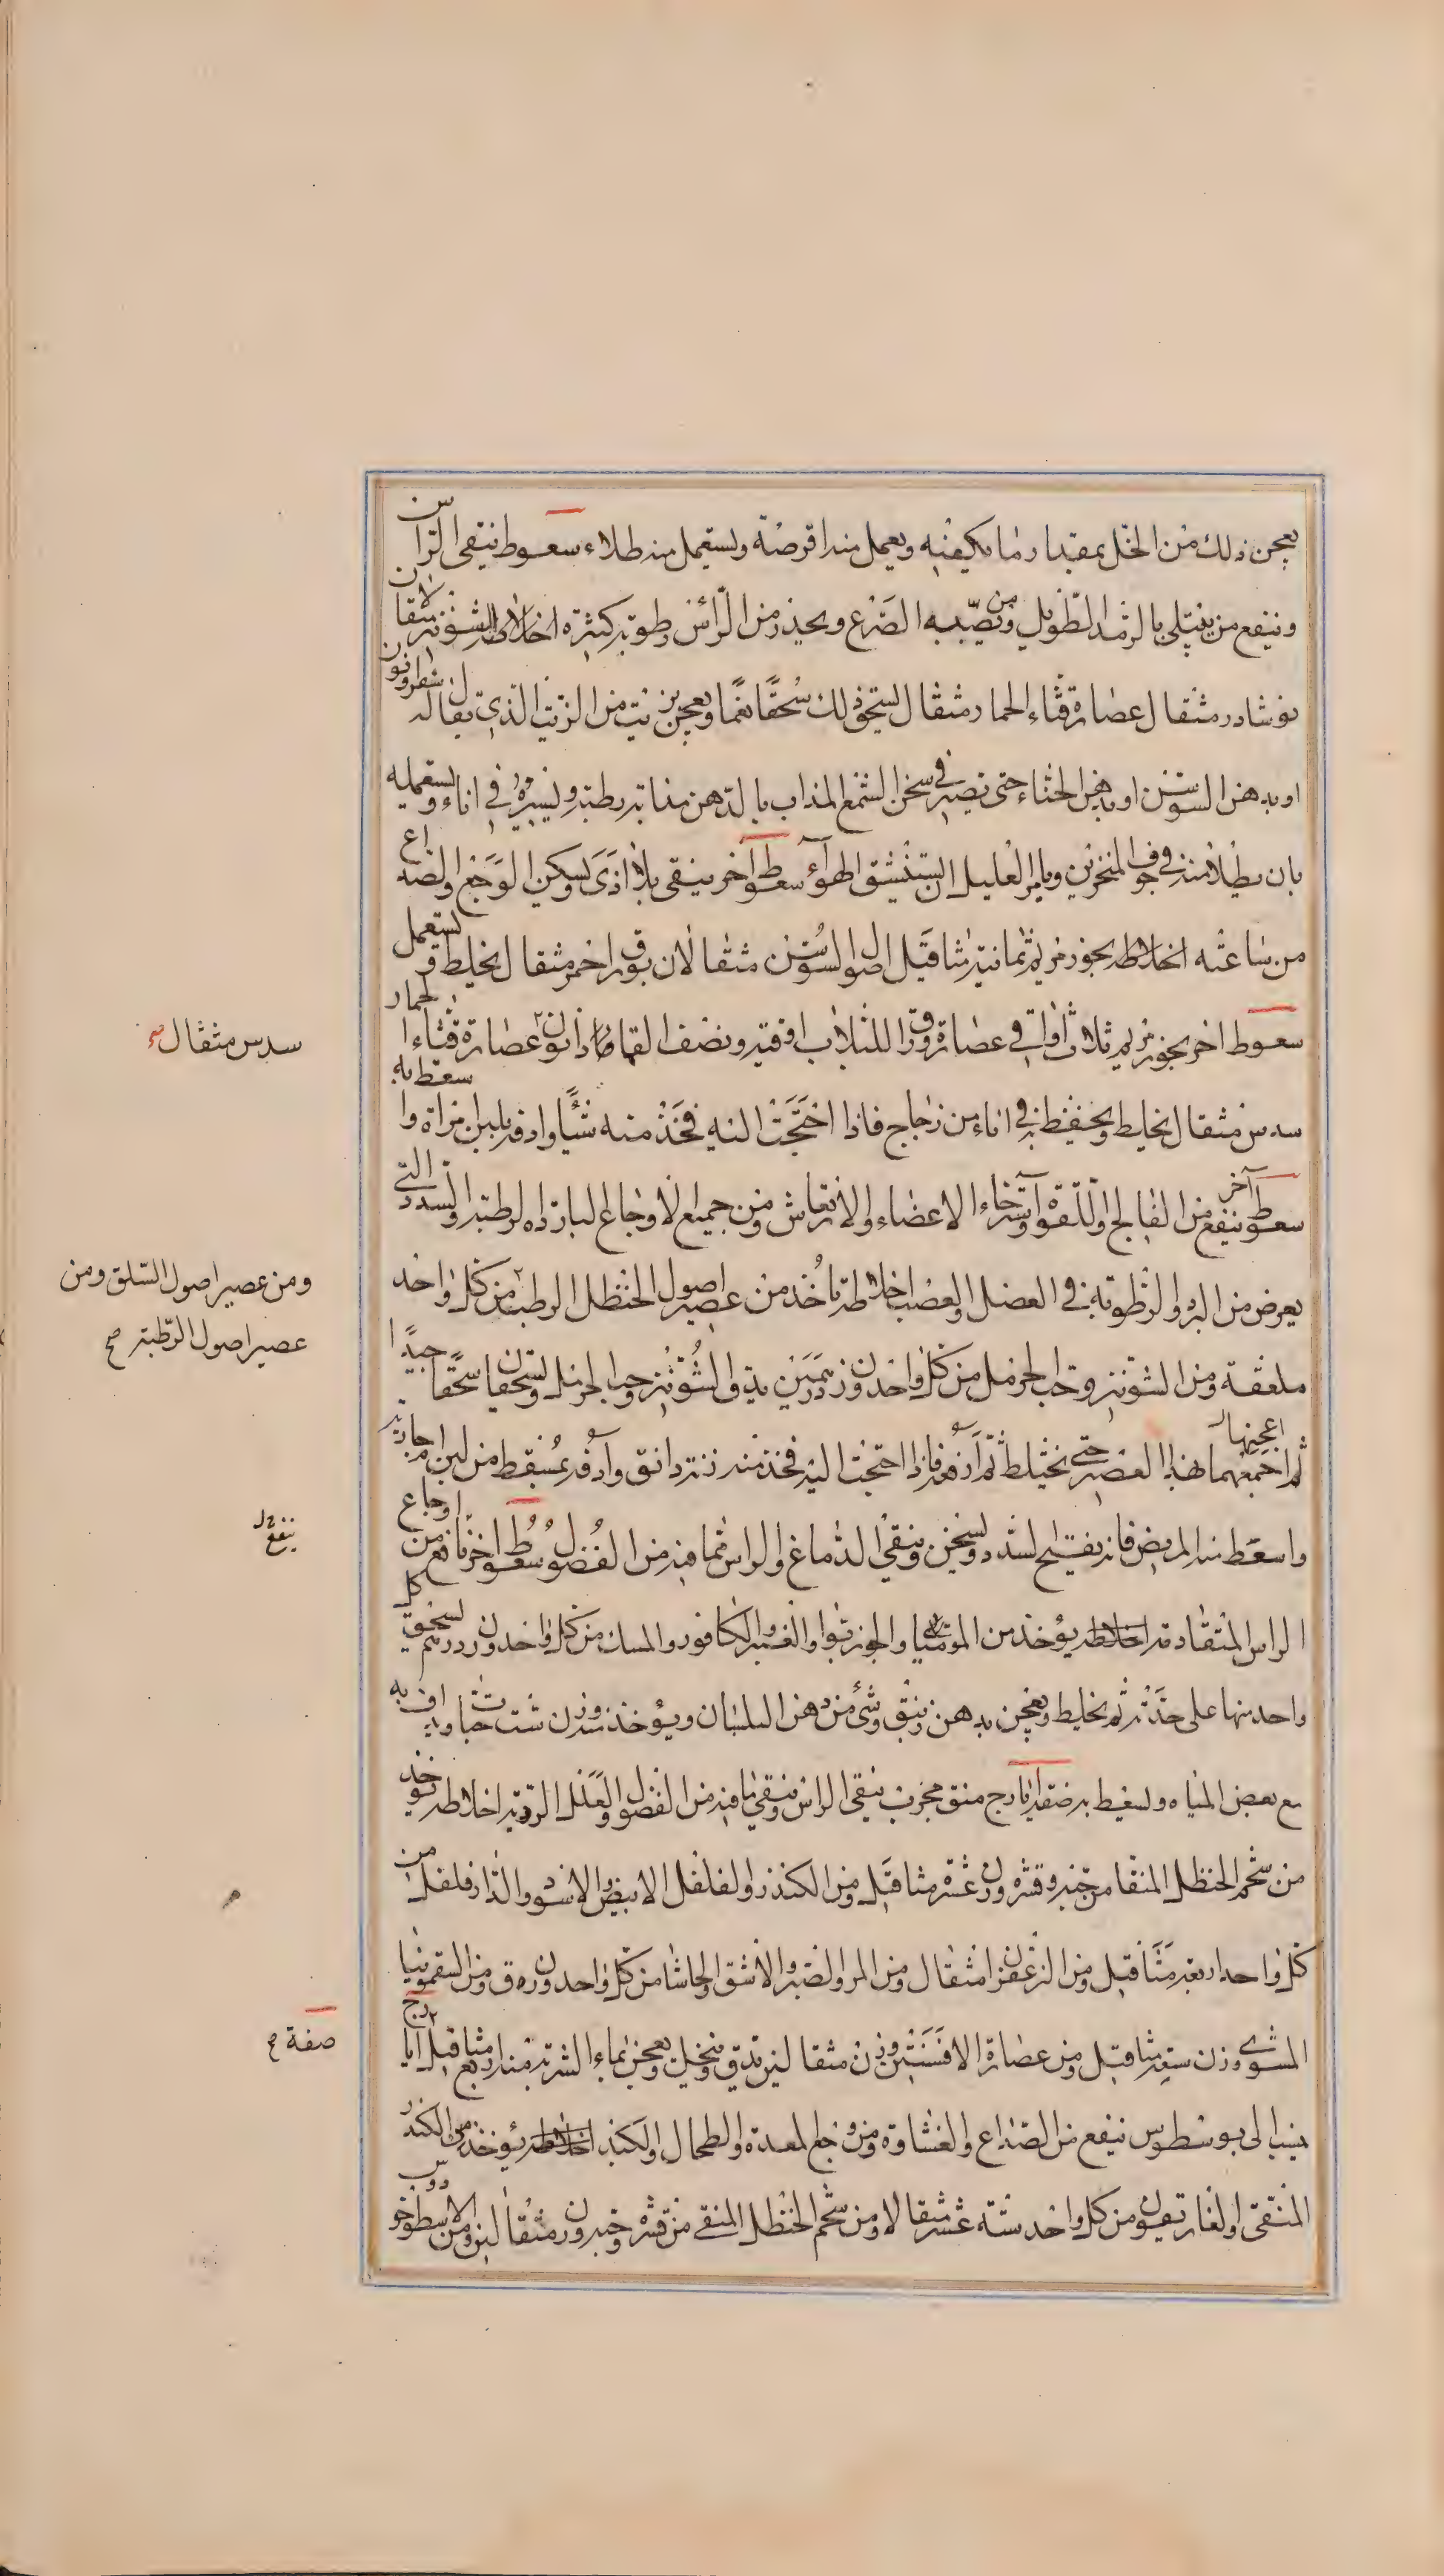 يعجن ذلك من الخل بمقدار ما يكفيه ويعمل منه اقرصة ويستعمل منه طلاء سعوط ينقى الراس
وينفع من يبتلى بالرمد الطويل ومن يصيبه الصرع ويحذر من الراس رطوبة كثيرة اخلاطه الشونيز مثقالان
نوشادر مثقال عصارة قثاء الحمار مثقال يسحق ذلك سحقا نعما ويعجن بزيت من الزيت الذي يقال له
او بدهن السوسن او بدهن الحناء حتى تصير في سخن الشمع المذاب بالدهن مذابة رطبة ويسيره في اناء ويستعمله
بان يطلا منه في جوف المنخرين ويامر العليل ان يستنشق الهواء سعوط آخر ينقى بلا اذى ويسكن الوجع والصداع
من ساعته اخلاطه بخور مريم ثمانية مثاقيل اصول السوسن مثقالان بورق احمر مثقال يخلط ويستعمل
سعوط اخر بخور مريم ثلاث اواق عصارة ورق اللبلاب اوقية ونصف عصارة قثاء الحمار
سدس مثقال يخلط ويحفظ في اناء من زجاج فاذا احتجت اليه فخذ منه شيئا وادفه بلبن مراة واسعط به
سعوط آخر ينفع من الفالج واللقوة واسترخاء الاعضاء والارتعاش ومن جميع الاوجاع الباردة الرطبة والسدد التي
يعرض من البرد والرطوبة في العضل والعصب اخلاطه تاخذ من عصير اصول الحنظل الرطب من كل واحد
ملعقة ومن الشونيز وحب الحرمل من كل واحد وزن درهمين يدق الشونيز وحب الحرمل ويسحقان سحقا جيدا
ثم اجمعهما بهذا العصير حتى يختلط ثم ارفعه فاذا احتجت اليه فخذ منه زنة دانق وادفه من لبن جارية
واسعط منه المريض فانه يفتح السدد ويسخن وينقى الدماغ والراس مما فيه من الفضول سعوط اخر نافع من اوجاع
الراس المتقادمة اخلاطه يؤخذ من الموميا والجوزبوا والعنبر والكافور والمسك من كل واحد وزن درهم يسحق كل
واحد منها على حدته ثم يخلط ويعجن بدهن زنبق وشئ من دهن البلسان ويؤخذ منه وزن ست حبات ويداف به
مع بعض المياه ويسعط به صفة ايارج منق مجرب ينقى الراس وينقى ما فيه من الفضول والعلل الردية اخلاطه يؤخذ
من شحم الحنظل المنقا من حبه وقشره وزن عشرة مثاقيل ومن الكندر والفلفل الابيض والاسود والدارفلفل من
كل واحد اربعة مثاقيل ومن الزعفران مثقال ومن المر والصبر والاشق والحاشا من كل واحد وزن ه ق ومن السقمونيا
المشوى وزن ستة مثاقيل ومن عصارة الافسنتين وزن مثقالين يدق وينخل ويعجن بماء الشربة منه اربع مثاقيل ايارج
ينسب الى بوسطوس ينفع من الصداع والغشاوة ومن وجع المعدة والطحال والكبد اخلاطه يؤخذ من الكندر
المنقى والغاريقون من كل واحد ستة عشر مثقالا ومن شحم الحنظل المنقى من قشره وحبه وزن مثقالين ومن الاسطوخودوس
سدس مثقال صح
ومن عصير اصول السلق ومن
عصير اصول الرطبة صح
ينفع
صفة